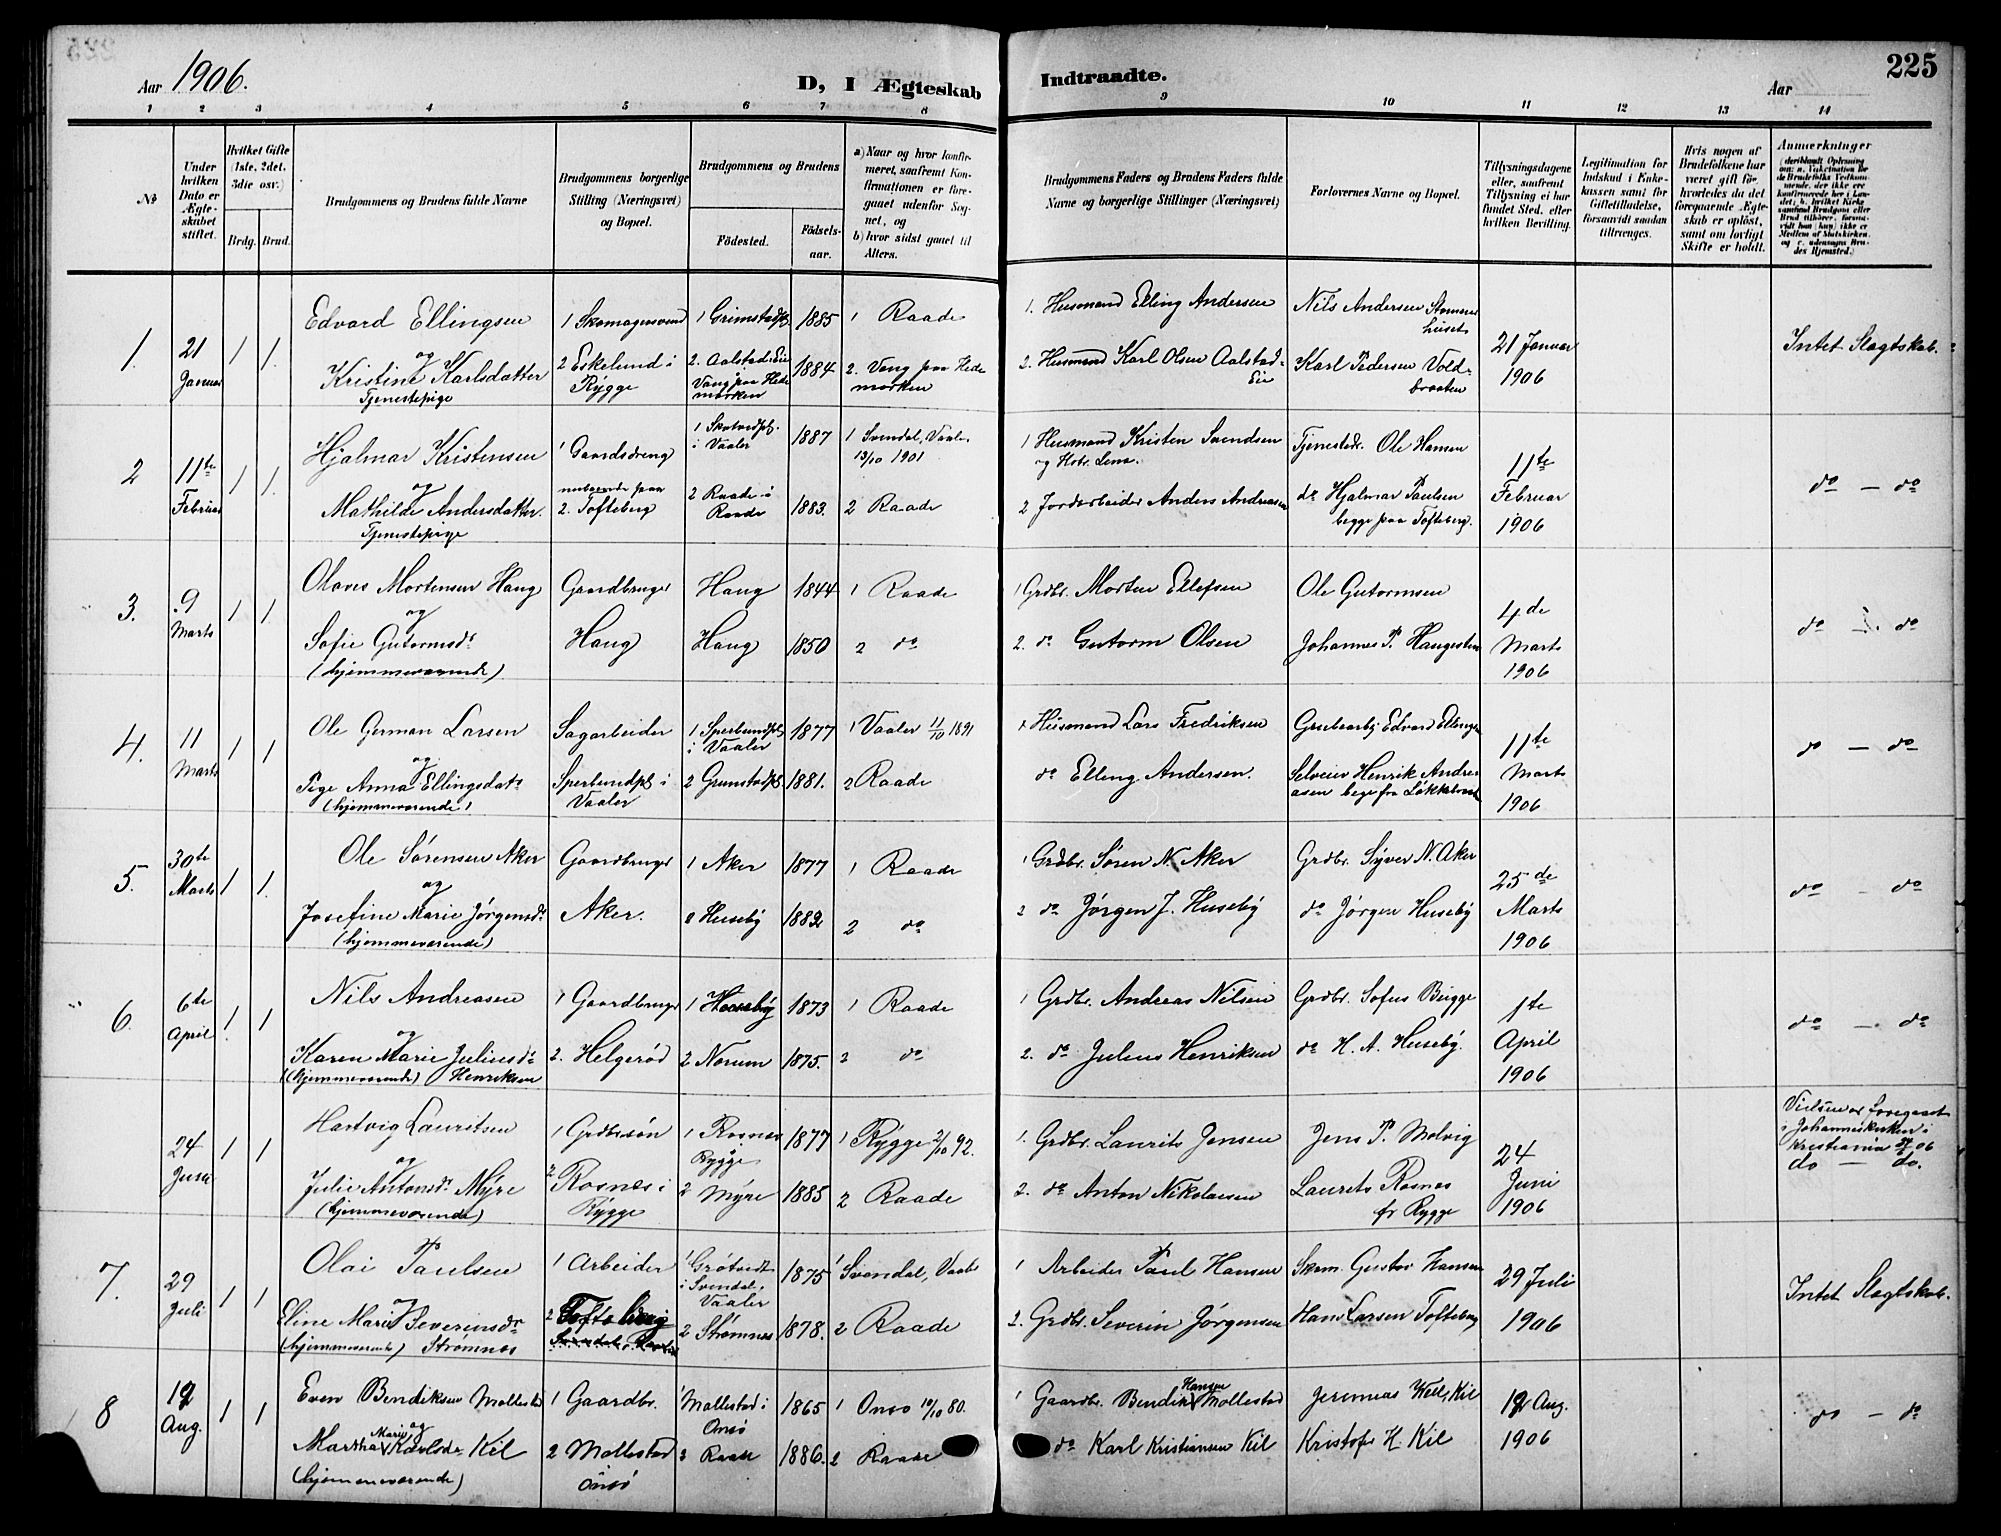 Aar 1906.
D, I Ægteskab
Indtraadte.
Aar
225
1 2 3 4 5 6 7 8 9 10 11 12 13 14
No
Under hvilken Dato er Ægteskabet stiftet.
Hvilket Gifte (1ste, 2det, 3die osv.)
Brdg. Brud.
Brudgommens og Brudens fulde Navne
Brudgommens borgerlige Stilling (Næringsvei) og Bopæl.
Brudgommens og Brudens
Fødested.
Fødselsaar.
a) Naar og hvor konfirmeret, saafremt Konfirmationen er foregaaet udenfor Sognet, og
b) hvor sidst gaaet til Alters.
Brudgommens Faders og Brudens Faders fulde Navne og borgerlige Stillinger (Næringsvei)
Forlovernes Navne og Bopæl.
Tillysningsdagene eller, saafremt Tillysning ei har fundet Sted, efter hvilken Bevilling.
Legitimation for Indskud i Enkekassen samt for Giftetilladelse, forsaavidt saadan tiltrænges.
Hvis nogen af Brudefolkene har været gift før, hvorledes da det foregaaende Ægteskab er opløst, samt om lovligt Skifte er holdt.
Anmerkninger
1. 21 Januar 1 1.
Edvard Ellingsen
og
Kristine Karlsdatter
Tjenestepige
1 Skomagersvend
2 Eskelund i Rygge
1 Grimstadpl. 1885
2. Aalstad Eie
Vang paa Hedemarken 1884
1 Raade
2. Vang paa Hedemarken
1. Husmand Elling Andersen
2. Husmand Karl Olsen Aalstad-Eie
Nils Andersen
Karl Pedersen Voldbraaten
21 Januar 1906
Intet Slagtskab.
2 11te Februar 1 1.
Hjalmar Kristensen
og
Mathilde Andersdatter.
Tjenestepige
1 Gaardsdreng
nuværende paa
2. Tofteberg
i Vaaler 1887
2 Raade i Raade 1883.
1 Svendal, Vaaler
13/10 1901
2 Raade
1 Husmand Kristen Svendsen
og Hstr. Lena.
2 Jordarbeider Anders Andreasen
Tjenestedr. Ole Hansen
do Hjalmar Paulsen
begge paa Tofteberg.
11te Februar 1906
do — do
3. 9 Marts 1 1.
Olaves Mortensen Haug
og
Sofie Gutormsd.
(hjemmeværende)
Gaardbruger
Haug
Haug 1844
Haug 1850
1 Raade
2 do
1 Grdbr. Morten Ellefsen
2. do Gutorm Olsen
Ole Gutormsen
Johannes P. Haugesten
4de Marts 1906
do — do
4. 11 Marts 1 1
Ole German Larsen
og
Pige Anna Ellingsdatr
(hjemmeværende)
Sagarbeider
Sperbundpl i Vaaler
1 Sperbundpl i Vaaler 1877
2 Grimstadpl. 1881.
1 Vaaler 11/10 1891
2 Raade
1 Husmand Lars Fredriksen
do Elling Andersen.
Grubearbj Edvard Ellingsen
Selveier Henrik Andreasen
11te Marts 1906
do — do
5. 30te Marts 1 1.
Ole Sørensen Aker
og
Josefine Marie Jørgensd.
(hjemmeværende)
Gaardbruger
Aker.
1 Aker 1877
2 Huseby 1882
1 Raade
2 do
1 Grdbr. Søren N. Aker
2 do Jørgen J. Huseby
Grdbr. Syver N. Aker
do Jørgen Huseby
25de Marts 1906
do — do
6. 6te April 1. 1
Nils Andreasen
og
Karen Marie Juliusd.
(hjemmeværende) Henriksen
1 Gaardbruger
2. Helgerød
1 Huseby 1873
2 Norum 1875.
1 Raade
2 do
1 Grdbr. Andreas Nilsen
2. do Julius Henriksen
Grdbr. Sofus Bugge
do H. A. Huseby.
1te April 1906
do — do
24 Juni 1 1
Hartvig Lauritsen
og
Julie Antonsd. Myre
(hjemmeværende)
1 Grdbrsøn
2 Rosnes i Rygge
1 Rosnes Rygge 1877
2 Myre 1885
1 Rygge 2/10 92.
2 Raade
1. Grdbr. Laurits Jensen
2. do Anton Nikolaisen
Jens P. Molvig
Laurits Rosnes
fr Rygge
24 Juni 1906
Vielsen er foregaaet
i Johanneskirken i
Kristiania 06
do — do.
7. 29 Juli 1 1
Olai Paulsen
og
Eline Marie Severinsdr
(hjemmeværende) Strømnes
1 Arbeider
2 Tofteberg
1 Grøtvedt i Svendal, Vaaler 1875
2 Strømnes 1878.
1 Svendal, Vaaler
2 Raade
1 Arbeider Paul Hansen
2. Grdbr. Severin Jørgensen
Skom. Gustav Hansen
Hans Larsen Tofteberg
29 Juli 1906
Intet Slagtskab.
8 12 Aug. 1 1
Even Bendiksen Mollestad
og
Martha Marie Karlsdr Kil
(hjemmeværende)
1 Gaardbr.
2 Mollestad Onsø
1 Mollestad i Onsø 1865
2 Raade 1886.
1 Onsø 10/10 80.
2 Raade
1 Gaardbr. Bendik Hansen Mollestad
do Karl Kristiansen Kil
Jeremias Kil
Kristofer H. Kil
12 Aug. 1906
do — do